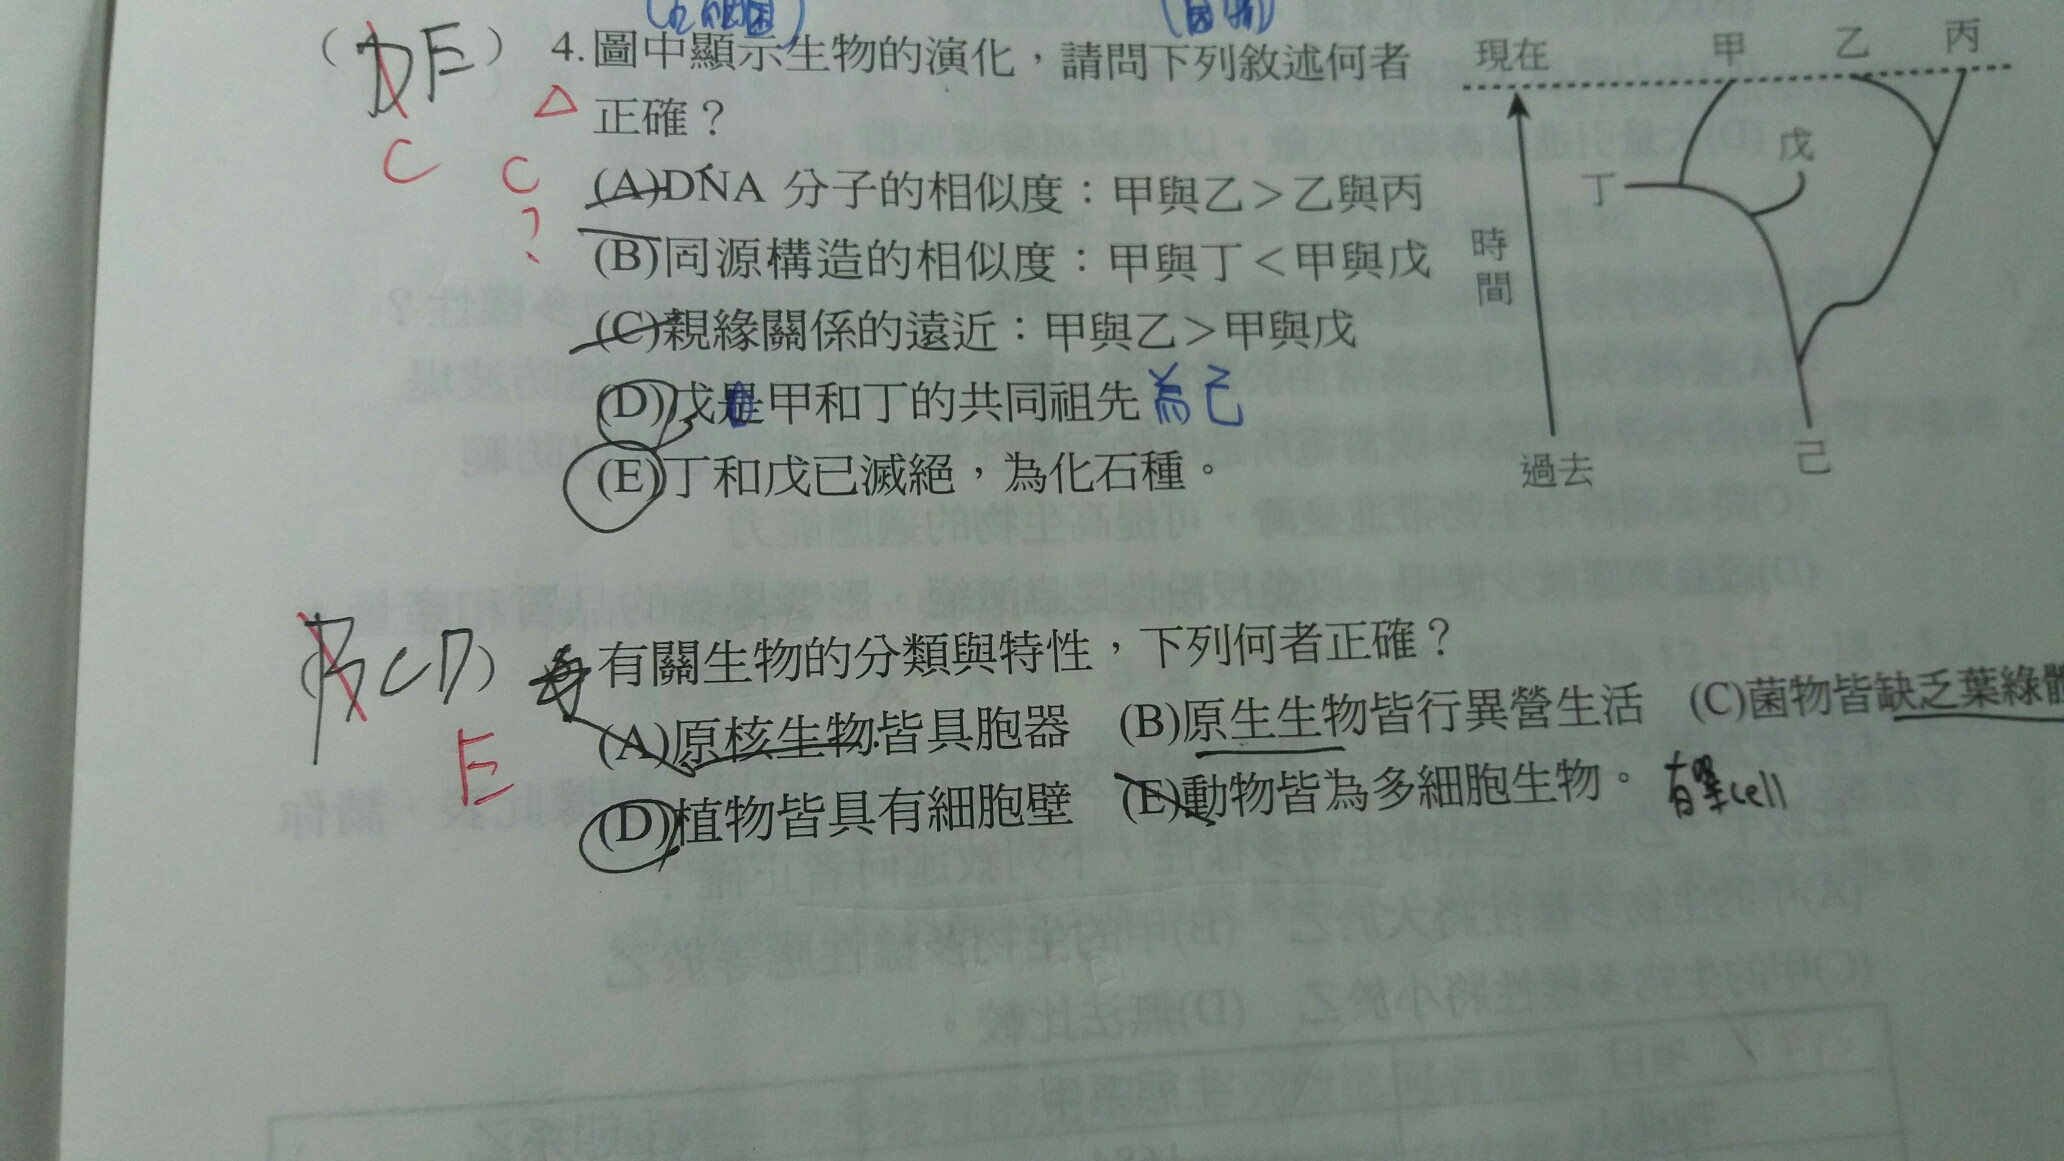 (DE) 4.圖中顯示生物的演化，請問下列敘述何者
正確？
C
△
C
?
(A)DNA 分子的相似度：甲與乙＞乙與丙
(B)同源構造的相似度：甲與丁＜甲與戊
(C)親緣關係的遠近：甲與乙＞甲與戊
(D)戊是甲和丁的共同祖先 為己
(E)丁和戊已滅絕，為化石種。
現在 甲 乙 丙
戊
丁
時
間
過去
己
(BCD) 有關生物的分類與特性，下列何者正確？
E
(A)原核生物皆具胞器 (B)原生生物皆行異營生活 (C)菌物皆缺乏葉綠體
(D)植物皆具有細胞壁 (E)動物皆為多細胞生物。 有單cell